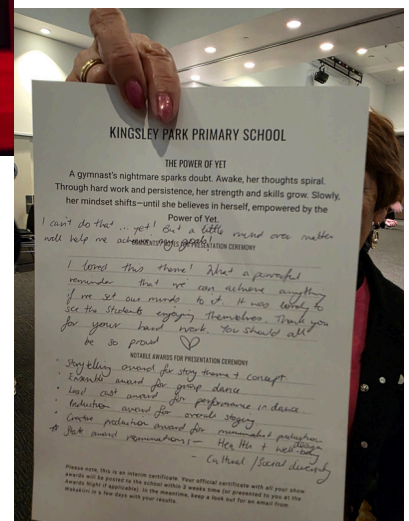 KINGSLEY PARK PRIMARY SCHOOL
THE POWER OF YET
A gymnast's nightmare sparks doubt. Awake, her thoughts spiral.
Through hard work and persistence, her strength and skills grow. Slowly,
her mindset shifts—until she believes in herself, empowered by the
Power of Yet.
I can't do that ... yet! But a little mind over matter
will help me achieve my goals!
FOR PRESENTATION CEREMONY
I loved this theme! What a powerful
reminder that we can achieve anything
if we set our minds to it. It was lovely to
see the students enjoying themselves. Thank you
for your hard work. You should all
be so proud ♡
NOTABLE AWARDS FOR PRESENTATION CEREMONY
Storytelling award for story theme + concept
Ensemble award for group dance
Lead cast award for performance in dance
Production award for overall staging
Creative production award for production
design
State award nominations: - Health + well-being
- Cultural / Social diversity
Please note, this is an interim certificate. Your official certificate with all your show
awards will be posted to the school within 3 weeks time (or presented to you at the
Awards Night if applicable). In the meantime, keep a look out for an email from
Wakakirri in a few days with your results.